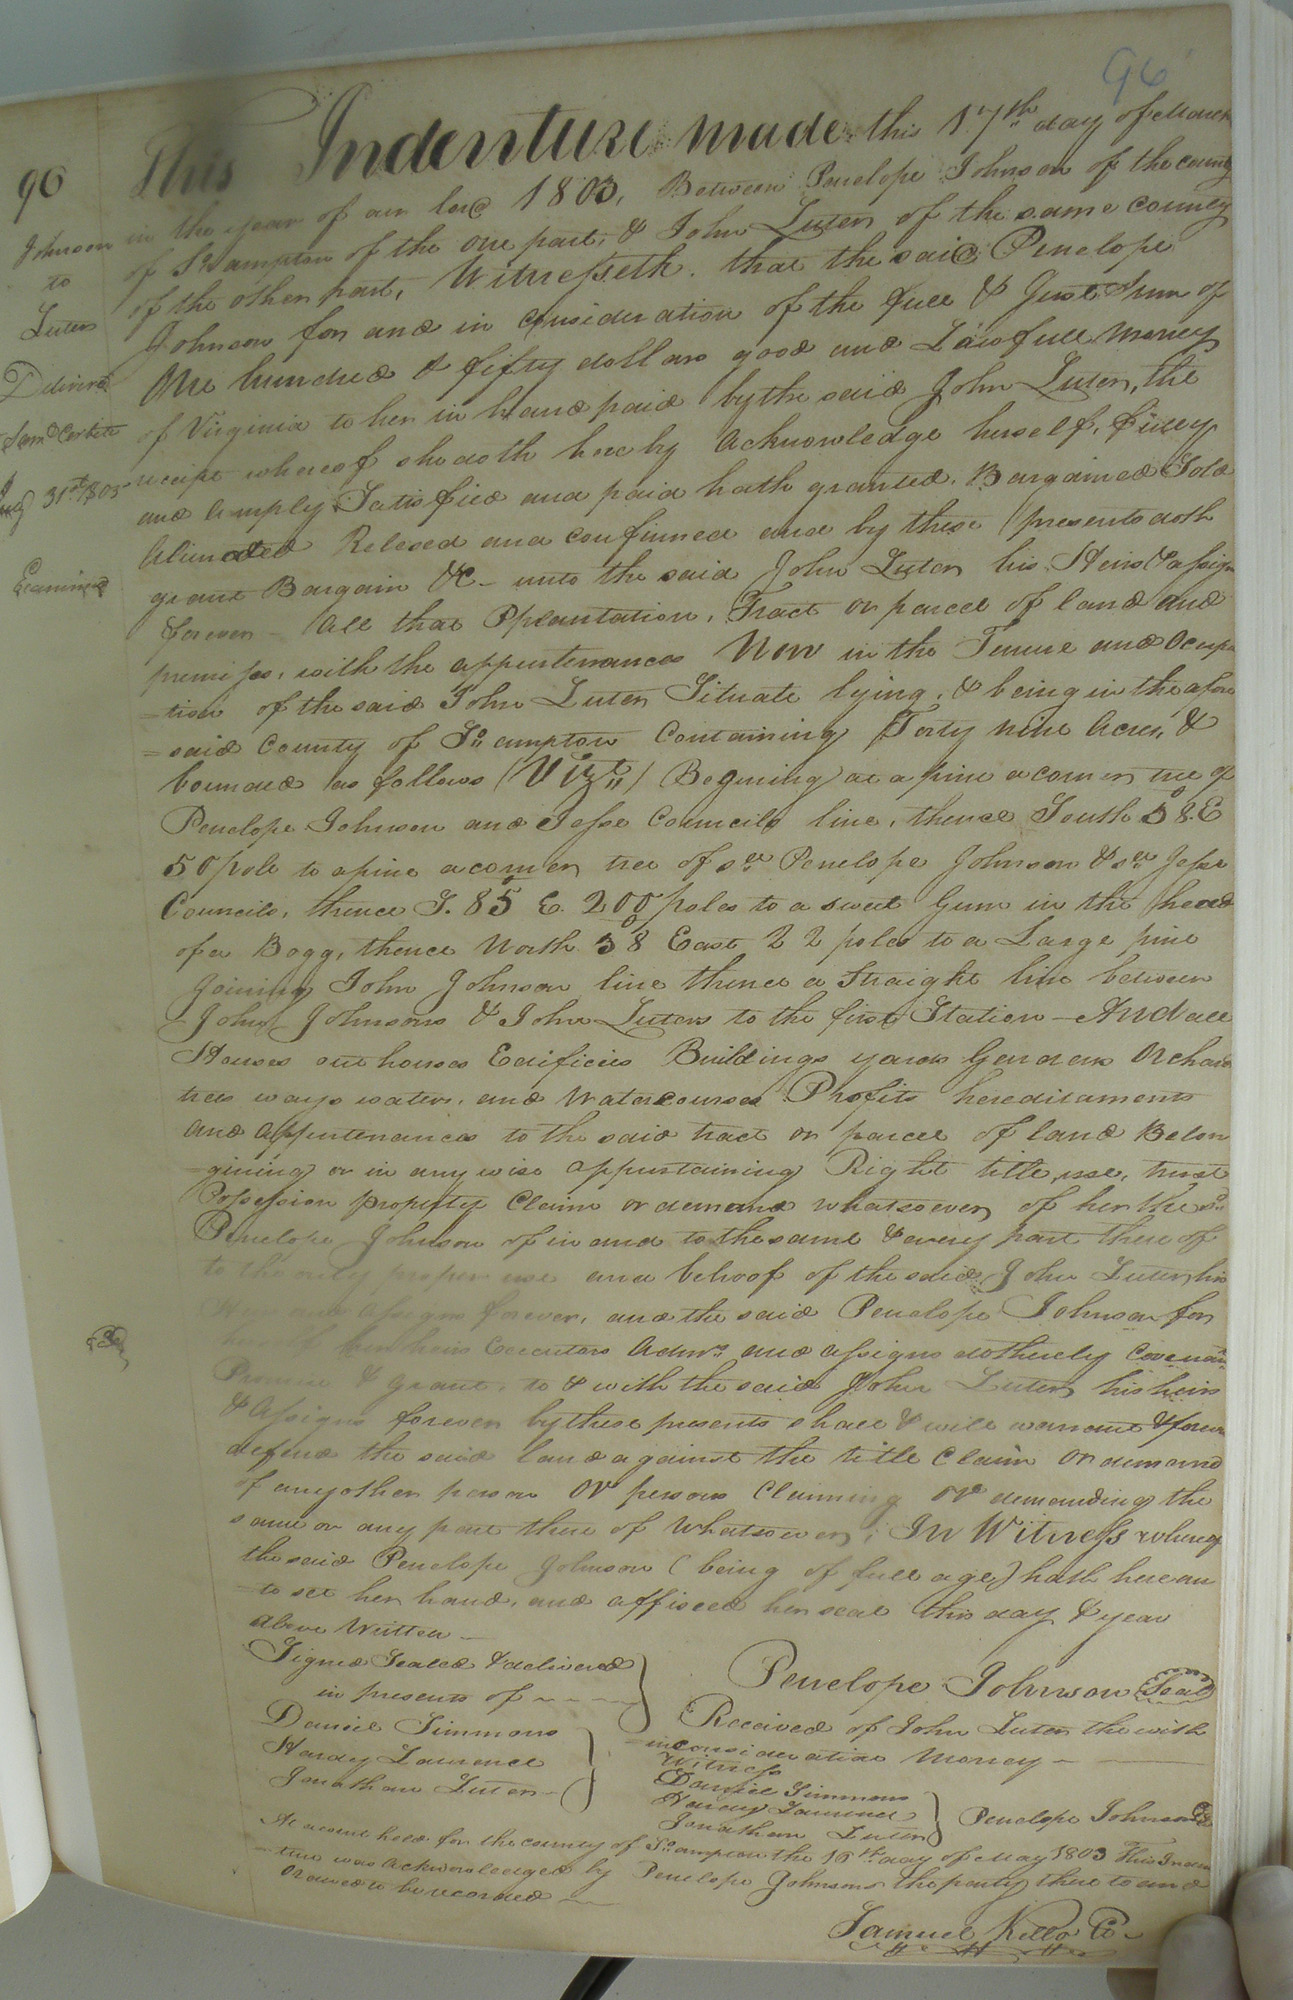 96
90
Johnson
to
Luten
Deliverd
Samˡ Corbett
31ˢᵗ 1805
Examined
This Indenture made this 17th day of March
in the year of our lord 1803, Between Penelope Johnson of the county
of Sºampton of the one part, & John Luten of the same county
of the other part, Witnesseth. that the said Penelope
Johnson for and in consideration of the full & Just Sum of
One hundred & fifty dollars good and Lawfull money
of Virginia to her in hand paid by the said John Luten, the
receipt whereof she doth hereby Acknowledge herself, fully
and Amply Satisfied and paid hath granted, Bargained Sold
Alienated Relesed and confirmed and by these presents doth
grant Bargain &C- unto the said John Luten his Heirs & assigns
forever - All that Pplantation, Tract or parcel of land and
premises, with the appurtenances Now in the Tenure and Occupa
=tion of the said John Luten Situate lying, & being in the afore
=said County of Sºampton Containing Forty nine Acres, &
bounded as follows (Vizt) Begining at a pine a corner tree of
Penelope Johnson and Jesse Councils line, thence South 58 E
50 pole to a pine a corner tree of sd Penelope Johnson & sd Jesse
Councils, thence S. 85 E. 200 poles to a sweet Gum in the head
of a Bogg, thence North 38 East 22 poles to a Large pine
Joining John Johnson line thence a Straight line between
John Johnsons & John Lutens to the first Station - And all
Houses out houses Edificies Buildings yards Gardens Orchard
trees ways waters, and Watercourses Profits hereditaments
and Appurtenances to the said tract or parcel of land Belon
=gining or in any wise appurtaining Right title, use, trust
Possession property Claim or demand whatsoever of her the sd
Penelope Johnson of in and to the same & every part there of
to the only proper use and behoof of the said John Luten, his
Heirs and Assigns forever, and the said Penelope Johnson for
herself her heirs Executors Admrs and assigns doth hereby Covenant
Promise & grant, to & with the said John Luten his heirs
& Assigns forever by these presents shall & will warrant & forever
defend the said land against the title Claim Or demand
of any other person Or persons Claiming Or demanding the
same or any part there of Whatsoever; In Witness whereof
the said Penelope Johnson (being of full age) hath here un
=to set her hand, and affixed her seal this day & year
Above Written -
Signed Sealed & delivered
in presents of
Penelope Johnson Seal
Daniel Simmons
Hardy Laurence
Jonathan Luten
Received of John Luten the with
=in consideration Money -
Witness
Daniel Simmons
Hardy Laurence
Jonathan Luten
Penelope Johnson
At a court held for the county of Sºampton the 16th day of May 1803 This Inden
=ture was acknowledged by Penelope Johnson the party thereto and
Ordered to be recorded
Samuel Kello Cl